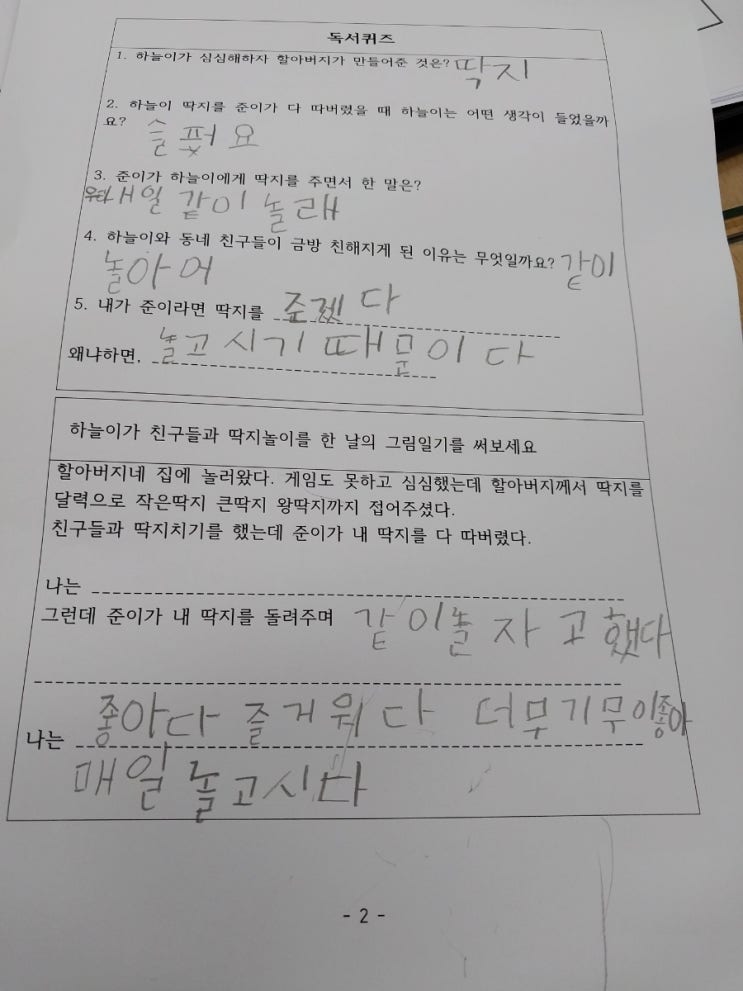 독서퀴즈
1. 하늘이가 심심해하자 할아버지가 만들어준 것은? 딱지
2. 하늘이 딱지를 준이가 다 따버렸을 때 하늘이는 어떤 생각이 들었을까
요? 슬펐요
3. 준이가 하늘이에게 딱지를 주면서 한 말은?
내일 같이 놀래
4. 하늘이와 동네 친구들이 금방 친해지게 된 이유는 무엇일까요? 같이
놀아어
5. 내가 준이라면 딱지를 주겠다
왜냐하면, 놀고시기 때문이다
하늘이가 친구들과 딱지놀이를 한 날의 그림일기를 써보세요
할아버지네 집에 놀러왔다. 게임도 못하고 심심했는데 할아버지께서 딱지를
달력으로 작은딱지 큰딱지 왕딱지까지 접어주셨다.
친구들과 딱지치기를 했는데 준이가 내 딱지를 다 따버렸다.
나는
그런데 준이가 내 딱지를 돌려주며 같이놀자고 했다
나는 좋아다 즐거워다 더무기무이좋아
매일 놀고시다
- 2 -